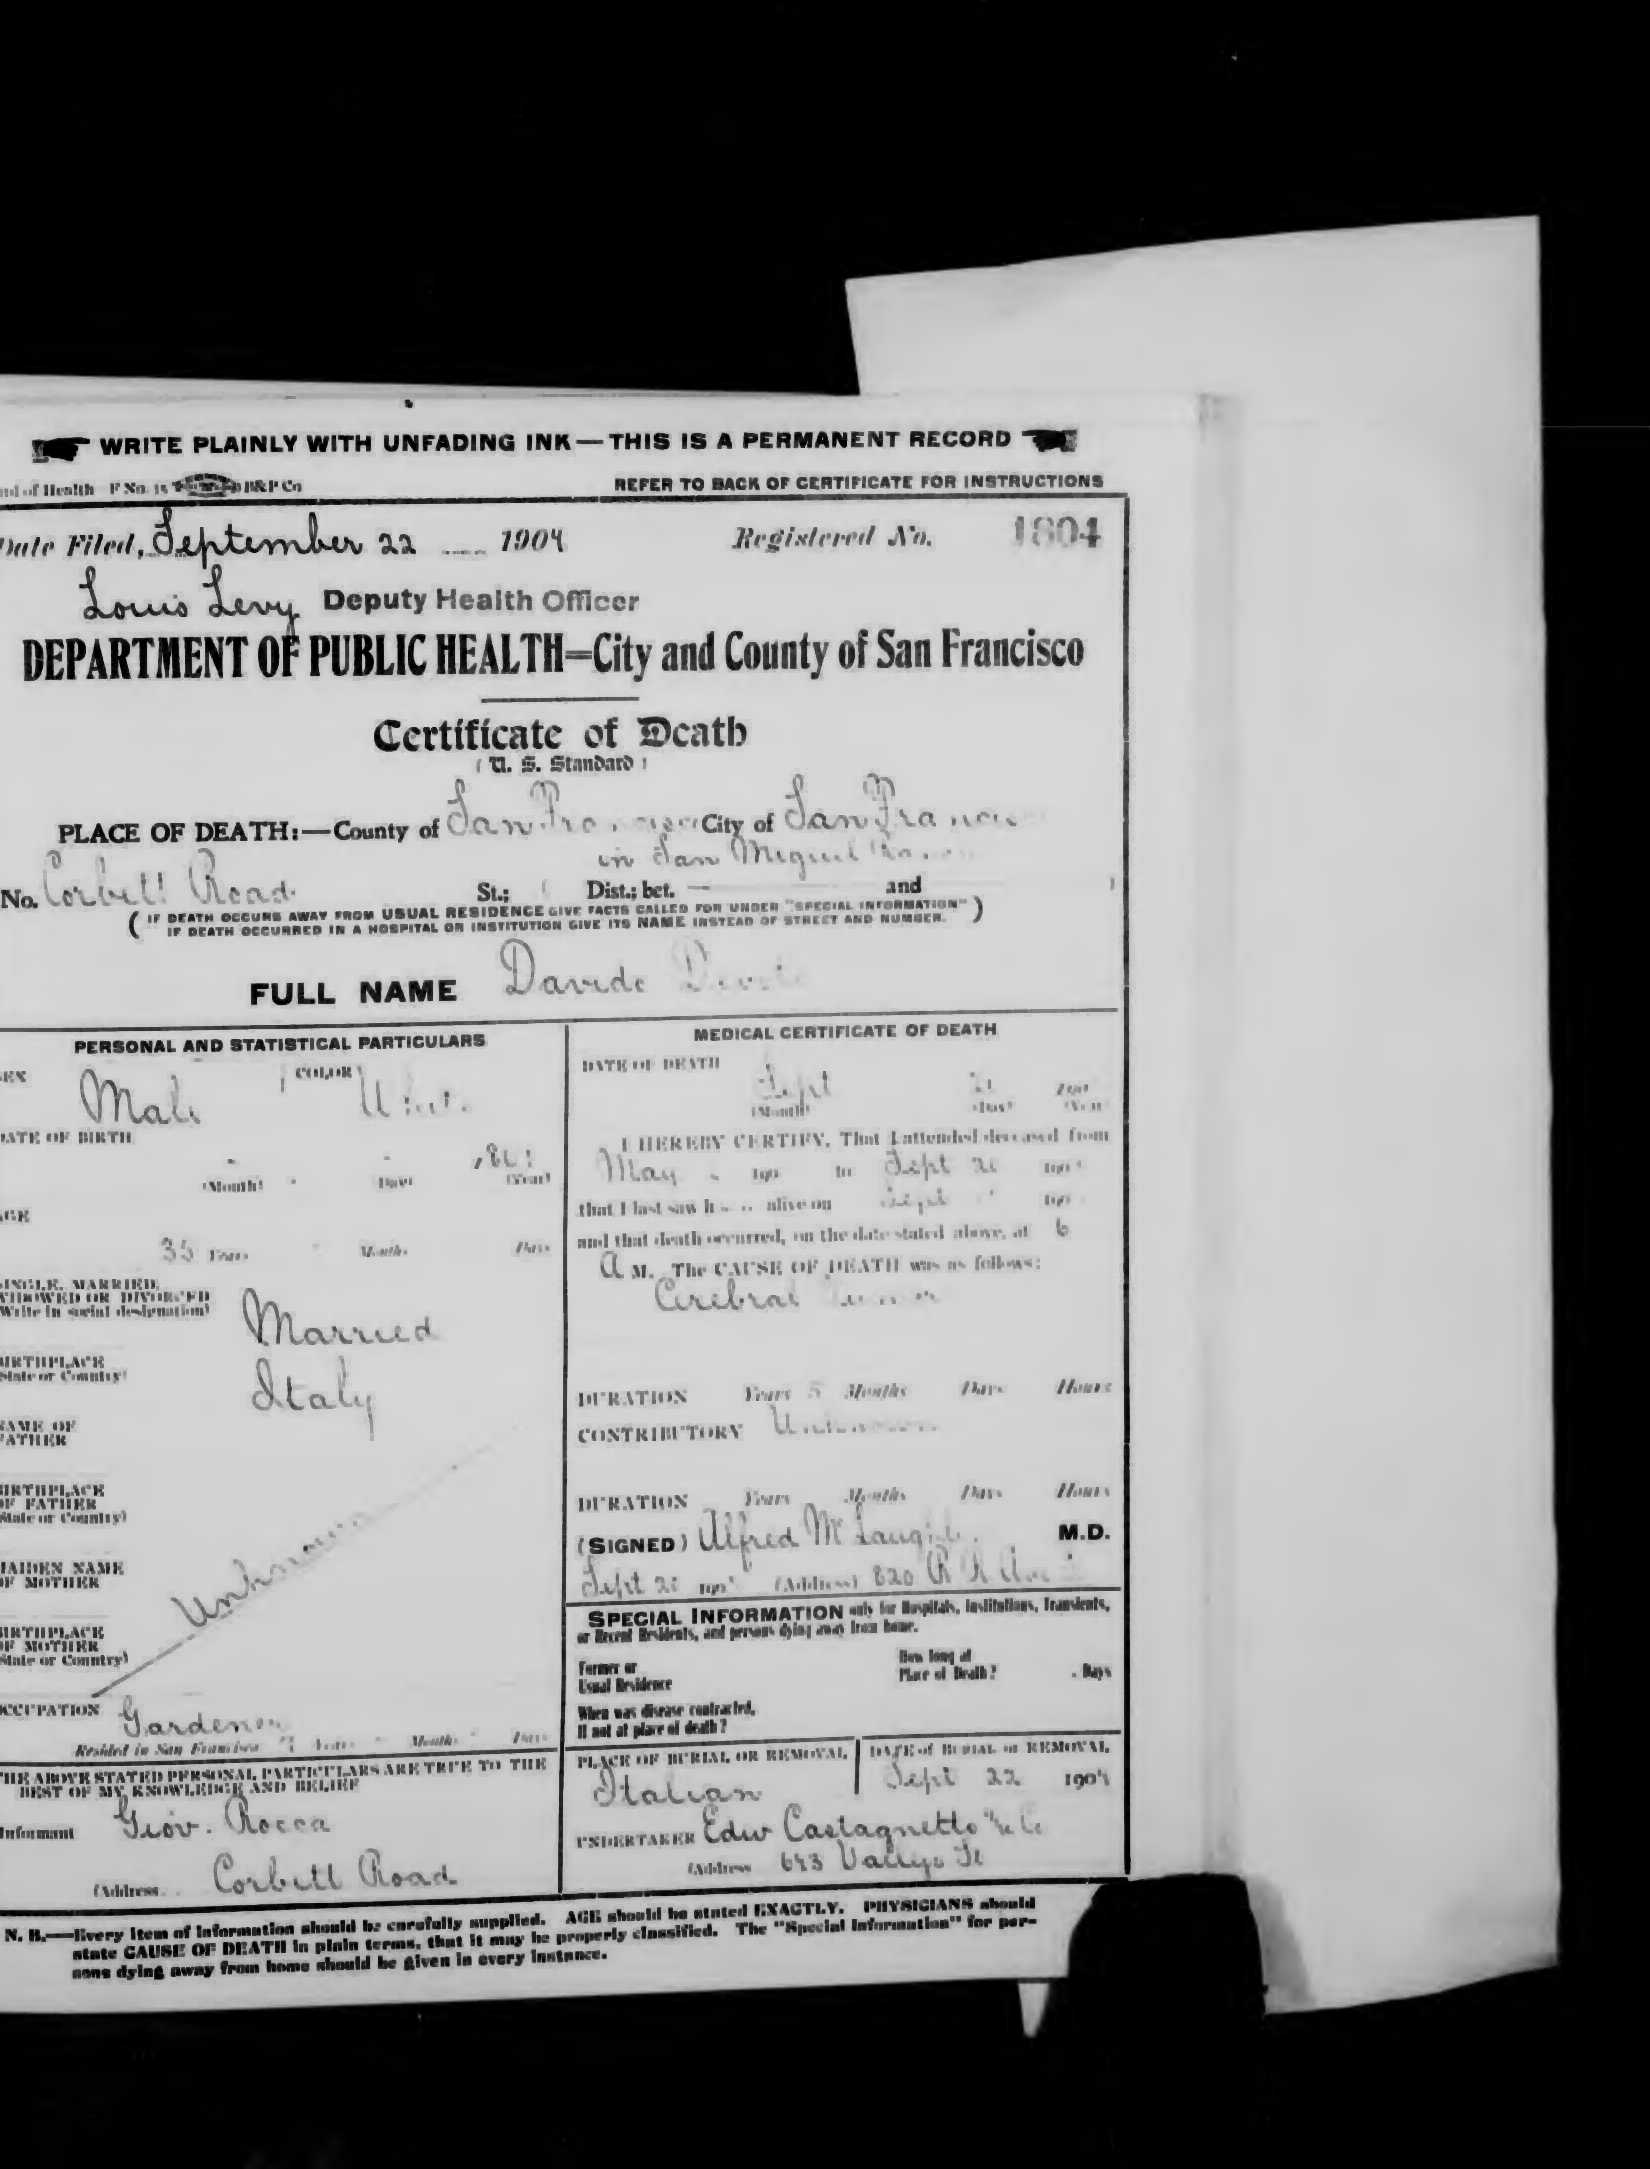 WRITE PLAINLY WITH UNFADING INK—THIS IS A PERMANENT RECORD
of Health F No. 15 B&P Co REFER TO BACK OF CERTIFICATE FOR INSTRUCTIONS
Date Filed, September 22 1904 Registered No. 1804
Louis Levy Deputy Health Officer
DEPARTMENT OF PUBLIC HEALTH=City and County of San Francisco
Certificate of Death
(U. S. Standard)
PLACE OF DEATH:—County of San Francisco City of San Francisco
in San Miguel
No. Corbett Road St.; Dist.; bet. — and
(IF DEATH OCCURS AWAY FROM USUAL RESIDENCE GIVE FACTS CALLED FOR UNDER "SPECIAL INFORMATION"
IF DEATH OCCURRED IN A HOSPITAL OR INSTITUTION GIVE ITS NAME INSTEAD OF STREET AND NUMBER.)
FULL NAME Davide
PERSONAL AND STATISTICAL PARTICULARS
SEX Male COLOR White
DATE OF BIRTH
(Month) (Day) (Year)
AGE
35 Years Months Days
SINGLE, MARRIED,
WIDOWED OR DIVORCED
(Write in social designation) Married
BIRTHPLACE
(State or Country) Italy
NAME OF
FATHER
BIRTHPLACE
OF FATHER
(State or Country)
MAIDEN NAME
OF MOTHER
Unknown
BIRTHPLACE
OF MOTHER
(State or Country)
OCCUPATION Gardener
Resided in San Francisco Years Months Days
THE ABOVE STATED PERSONAL PARTICULARS ARE TRUE TO THE
BEST OF MY KNOWLEDGE AND BELIEF
Informant Giov. Rocca
(Address Corbett Road
MEDICAL CERTIFICATE OF DEATH
DATE OF DEATH
Sept 21 190
(Month) (Day) (Year)
I HEREBY CERTIFY, That I attended deceased from
May 190 to Sept 20 190
that I last saw h alive on Sept 190
and that death occurred, on the date stated above, at 6
A M. The CAUSE OF DEATH was as follows:
Cerebral Tumor
DURATION Years 5 Months Days Hours
CONTRIBUTORY Unknown
DURATION Years Months Days Hours
(SIGNED) Alfred McLaughlin M.D.
Sept 190 (Address) 820
SPECIAL INFORMATION only for Hospitals, Institutions, Transients,
or Recent Residents, and persons dying away from home.
Former or
Usual Residence
How long at
Place of Death? Days
When was disease contracted,
If not at place of death?
PLACE OF BURIAL OR REMOVAL DATE of BURIAL or REMOVAL
Italian Sept 22 1904
UNDERTAKER Edw Castagnetto & Co
(Address 643 Vallejo St
N. B.—Every item of information should be carefully supplied. AGE should be stated EXACTLY. PHYSICIANS should
state CAUSE OF DEATH in plain terms, that it may be properly classified. The "Special Information" for per-
sons dying away from home should be given in every instance.